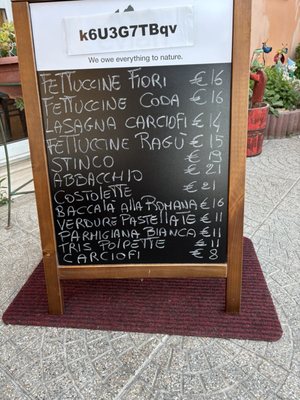 k6U3G7TBqv
We owe everything to nature.
FETTUCCINE FIORI €16
FETTUCCINE CODA €16
LASAGNA CARCIOFI €14
FETTUCCINE RAGÙ €15
STINCO €19
ABBACCHIO €21
COSTOLETTE €21
BACCALÀ ALLA ROMANA €16
VERDURE PASTELLATE €11
PARMIGIANA BIANCA €11
TRIS POLPETTE €11
CARCIOFI €8